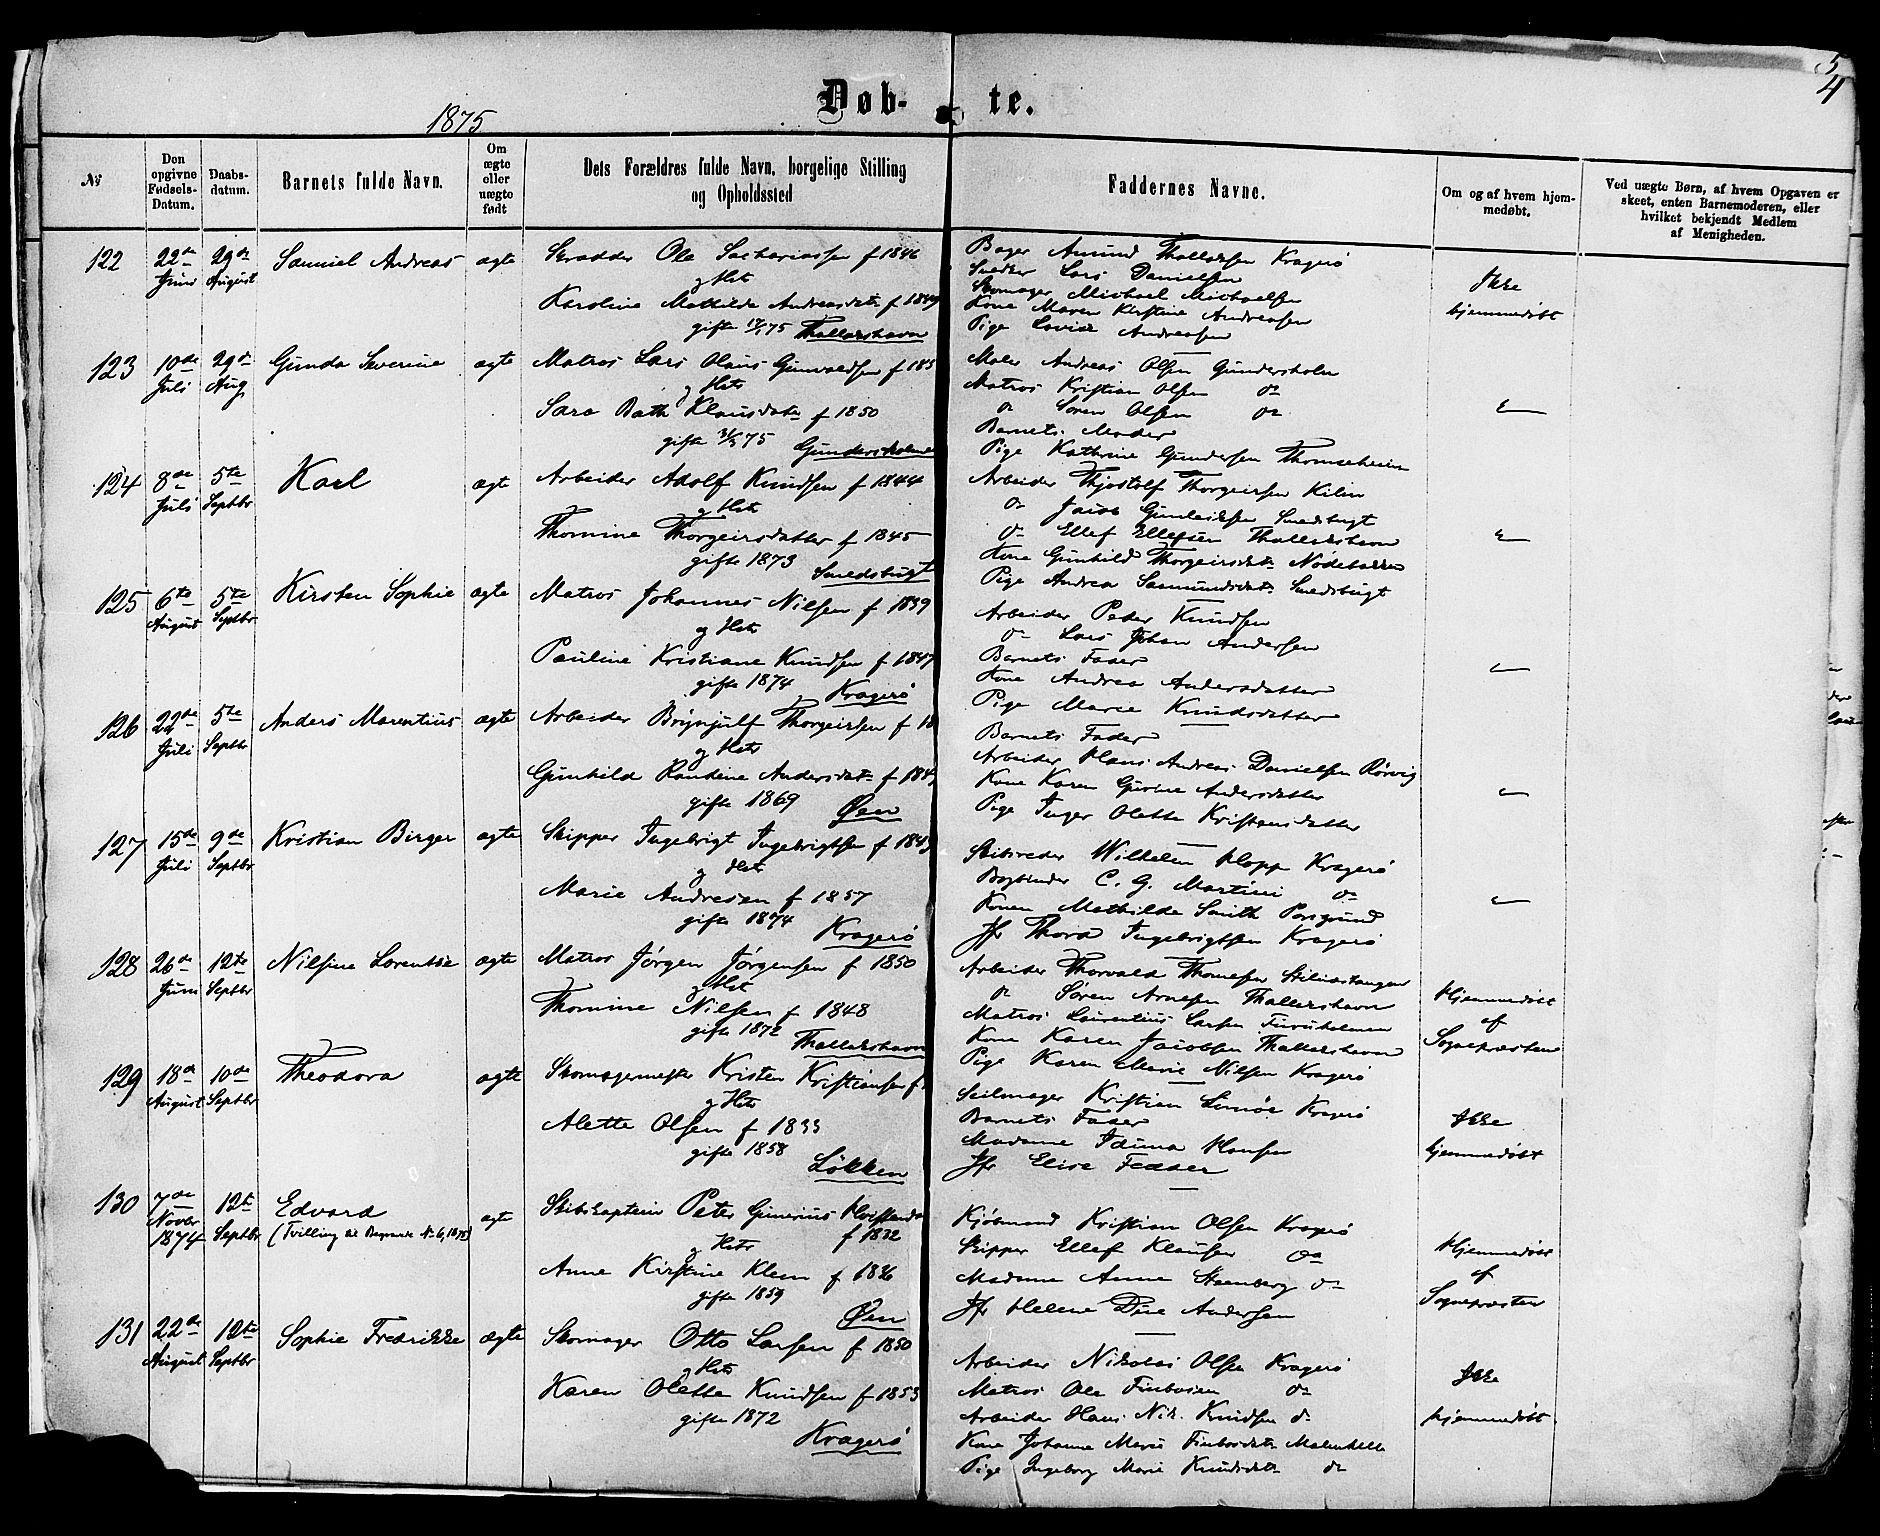 5
4
1875
Døb- te.
No
Den opgivne Fødsels-Datum.
Daabs-datum.
Barnets fulde Navn.
Om ægte eller uægte født
Dets Forældres fulde Navn, borgelige Stilling og Opholdssted
Faddernes Navne.
Om og af hvem hjem-medøbt.
Ved uægte Børn, af hvem Opgaven er skeet, enten Barnemoderen, eller hvilket bekjendt Medlem af Menigheden.
122 22de Juni 29de August Samuel Andreas ægte
Skrædder Ole Sachariassen f 1846
og Hst
Karoline Mathilde Andreasdatr f 1849
gifte 17/1 75 Thallershavn
Bager Amund Kragerø
Snedker Lars Danielsen
Skomager Michael Michaelsen
Kone Maren Kirstine Andreasen
Pige Lovise Andreasen
Ikke hjemmedøbt
123 10de Juli 29de Aug Gunda Severine ægte
Matros Lars Olaus Gunvaldsen f 185
og Hst
Sara Bath Klausdatr f 1850
gifte 31/3 75
Gundersholmen
Maler Andreas Olsen Gundersholm
Matros Kristian Olsen do
do Søren Olsen do
Barnets Moder
Pige Kathrine Gundersen Thomseheien
124 8de Juli 5te Septbr Karl ægt
Arbeider Adolf Knudsen f 1844
og Hst
Thomine Thorgeirsdatter f 1845
gifte 1873
Smedsbugt
Arbeider Thjostolf Thorgeirsen Kilen
do Jacob Gunleiksen Smedsbugt
do Ellef Ellefsen Thallershavn
Kone Gunhild Thorgeirsdatr Nødebakken
Pige Andrea Samundsdatr Smedsbugt
125 6te August 5te Septbr Kirsten Sophie ægte
Matros Johannes Nilsen f 1839
og Hst
Pauline Kristiane Knudsen f 1847
gifte 1874
Kragerø
Arbeider Peder Knudsen
do Lars Johan Andersen
Barnets Fader
Kone Andrea Andersdatter
Pige Marie Knudsdatter
126 22de Juli 5te Septbr Anders Marentius ægte
Arbeider Brynjulf Thorgeirsen f 18
og Hst
Gunhild Randine Andersdatr f 1843
gifte 1869
Øen
Barnets Fader
Arbeider Hans Andreas Danielsen Rørvig
Kone Karen Gurine Andersdatter
Pige Inger Olette Kristensdatter
127 15de Juli 9de Septbr Kristian Birger ægte
Skipper Ingebrigt Ingebrigtsen f 1843
og Hst
Marie Andresen f 1857
gifte 1874
Kragerø
Skibsreder Wilhelm Hopp Kragerø
Bogbinder C. G. Martini do
Konen Mathilde Smith Porsgrund
Jfr Thora Ingebrigtsen Kragerø
128 26de Juni 12te Septbr Nilsine Lorentse ægte
Matros Jørgen Jørgensen f 1850
og Hst
Thomine Nilsen f 1848
gifte 1872
Thallershavn
Arbeider Thorvald Thomesen Stilnestangen
do Søren Arnesen Thallershavn
Matros Laurentius Larsen Furuholmen
Kone Karen Jacobsen Thallershavn
Pige Karen Marie Nilsen Kragerø
Hjemmedøbt af Sognepræsten
129 18de August 10de Septbr Theodora ægte
Skomagermester Kristen Kristiansen f
og Hst
Alette Olsen f 1833
gifte 1858
Løkken
Seilmager Kristian Limøe Kragerø
Barnets Fader
Madame Iduna Hansen
Jfr Elise Fedser
Ikke hjemmedøbt
130 7de Novbr 1874 12te Septbr Edvard
(Tvilling til Begravede No 6, 1875)
ægte
Skibskaptein Peter Gunerius
f 1832
og Hst
Anne Kirstine Klem f 1836
gifte 1859
Øen
Kjøbmand Kristian Olsen Kragerø
Skipper Ellef Klausen do
Madame Anne Stenberg do
Jfr Helene Due Andersen
Hjemmedøbt af Sognepræsten
131 22de August 12te Septbr Sophie Fredrikke ægte
Skomager Otto Larsen f 1850
og Hst
Karen Olette Knudsen f 1853
gifte 1872
Kragerø
Arbeider Nikolai Olsen Kragerø
Matros Ole Finboisen do
Arbeider Hans Nik. Knudsen do
Kone Johanne Marie Finboisdatr Malmhella
Pige Ingeborg Marie Knudsdatr do
Ikke hjemmedøbt